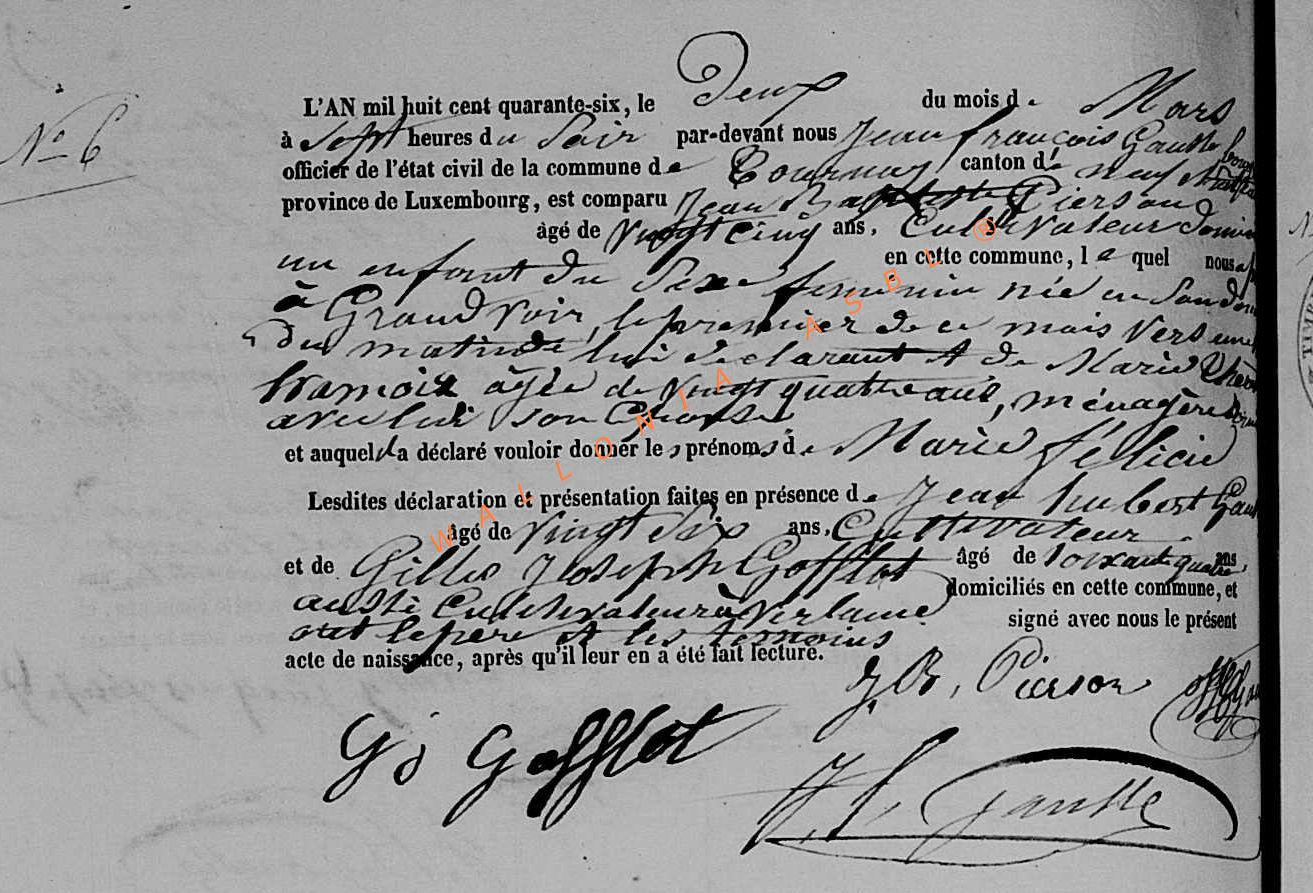 N° 6
L'AN mil huit cent quarante-six, le Deux du mois de Mars
à Sept heures du Soir par-devant nous Jean françois Gauthe
officier de l'état civil de la commune de Tournay canton de neufchateau
province de Luxembourg, est comparu Jean Baptiste Pierson
âgé de Vingt Cinq ans, Cultivateur
en cette commune, le quel nous
un enfant du Sexe feminin née en Son
à Grand Voir, le premier de ce mois Vers une
du matin de lui déclarant et de Marie
framoix âgée de Vingt quatre ans, ménagère
avec lui son Epouse
et auquel a déclaré vouloir donner les prénoms de Marie félicie
Lesdites déclaration et présentation faites en présence de Jean hubert
âgé de Vingt Six ans, Cultivateur
et de Gilles Joseph Gofflot âgé de Soixante quatre ans,
aussi Cultivateur à Verlaine domiciliés en cette commune, et
ont le père et les temoins signé avec nous le présent
acte de naissance, après qu'il leur en à été fait lecture.
J, B, Pierson
G J Gofflot
J. f. Gauthe
WALLONIA ASBL ®